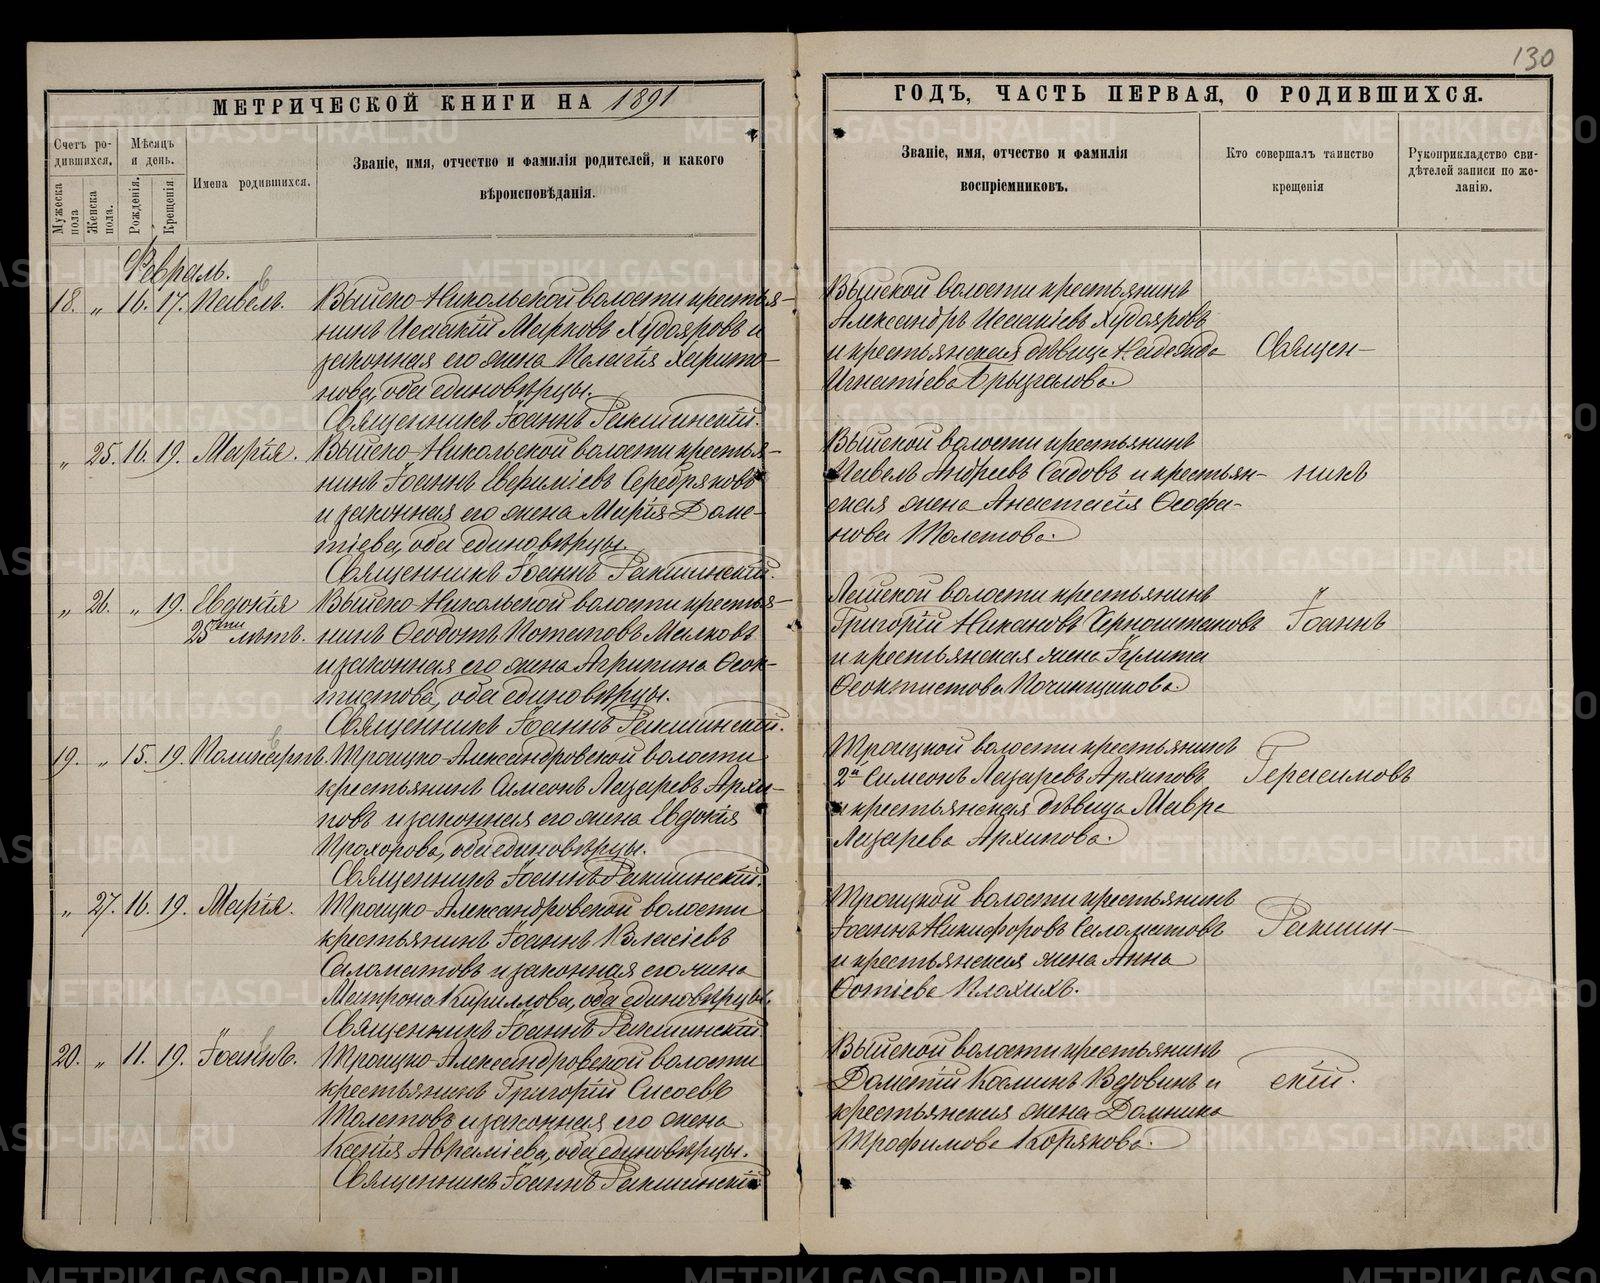 130
МЕТРИЧЕСКОЙ КНИГИ НА 1891
ГОДЪ, ЧАСТЬ ПЕРВАЯ, О РОДИВШИХСЯ.
Счетъ ро-
дившихся.
Мужеска
пола
Женска
пола.
Мѣсяцъ
и день.
Рожденія.
Крещенія
Имена родившихся.
Званіе, имя, отчество и фамилія родителей, и какого
вѣроисповѣданія.
Званіе, имя, отчество и фамилія
воспріемниковъ.
Кто совершалъ таинство
крещенія
Рукоприкладство сви-
дѣтелей записи по же-
ланію.
Февраль.
18. „ 16. 17. Павелъ.
Выйско-Никольской волости крестья-
нинъ Исаакій Марковъ Худояровъ и
законная его жена Пелагія Харито-
нова, оба единовѣрцы.
Священникъ Іоаннъ Ракшинскій.
Выйской волости крестьянинъ
Александръ Исаакіевъ Худояровъ
и крестьянская дѣвица Надежда
Игнатіева Брызгалова.
„ 25. 16. 19. Марія.
Выйско-Никольской волости крестья-
нинъ Іоаннъ Евфиміевъ Серебряковъ
и законная его жена Марія Доме-
тіева, оба единовѣрцы.
Священникъ Іоаннъ Ракшинскій.
Выйской волости крестьянинъ
Павелъ Андреевъ Садовъ и крестьян-
ская жена Анастасія Ѳеофа-
нова Молетова.
„ 26. „ 19. Евдокія
25ти лѣтъ.
Выйско-Никольской волости крестья-
нинъ Ѳеодотъ Потаповъ Малковъ
и законная его жена Агрипина Ѳеок-
тистова, оба единовѣрцы.
Священникъ Іоаннъ Ракшинскій.
Лайской волости крестьянинъ
Григорій Никановъ Черноштановъ
и крестьянская жена Іулита
Ѳеоктистова Починщикова.
19. „ 15. 19. Поликарпъ.
Троицко-Александровской волости
крестьянинъ Симеонъ Лазаревъ Архи-
повъ и законная его жена Евдокія
Прохорова, оба единовѣрцы.
Священникъ Іоаннъ Ракшинскій.
Троицкой волости крестьянинъ
2й Симеонъ Лазаревъ Архиповъ
и крестьянская дѣвица Мавра
Лазарева Архипова.
„ 27. 16. 19. Марія.
Троицко-Александровской волости
крестьянинъ Іоаннъ Власіевъ
Саломатовъ и законная его жена
Матрона Кириллова, оба единовѣрцы.
Священникъ Іоаннъ Ракшинскій.
Троицкой волости крестьянинъ
Іоаннъ Никифоровъ Саломатовъ
и крестьянская жена Анна
Фотіева Плохихъ.
20. „ 11. 19. Іоаннъ.
Троицко-Александровской волости
крестьянинъ Григорій Сисоевъ
Молетовъ и законная его жена
Ксенія Авраміева, оба единовѣрцы.
Священникъ Іоаннъ Ракшинскій
Выйской волости крестьянинъ
Дометій Косминъ Вдовинъ и
крестьянская жена Домника
Трофимова Корякова.
Священ-
никъ
Іоаннъ
Герасимовъ
Ракшин-
скій.